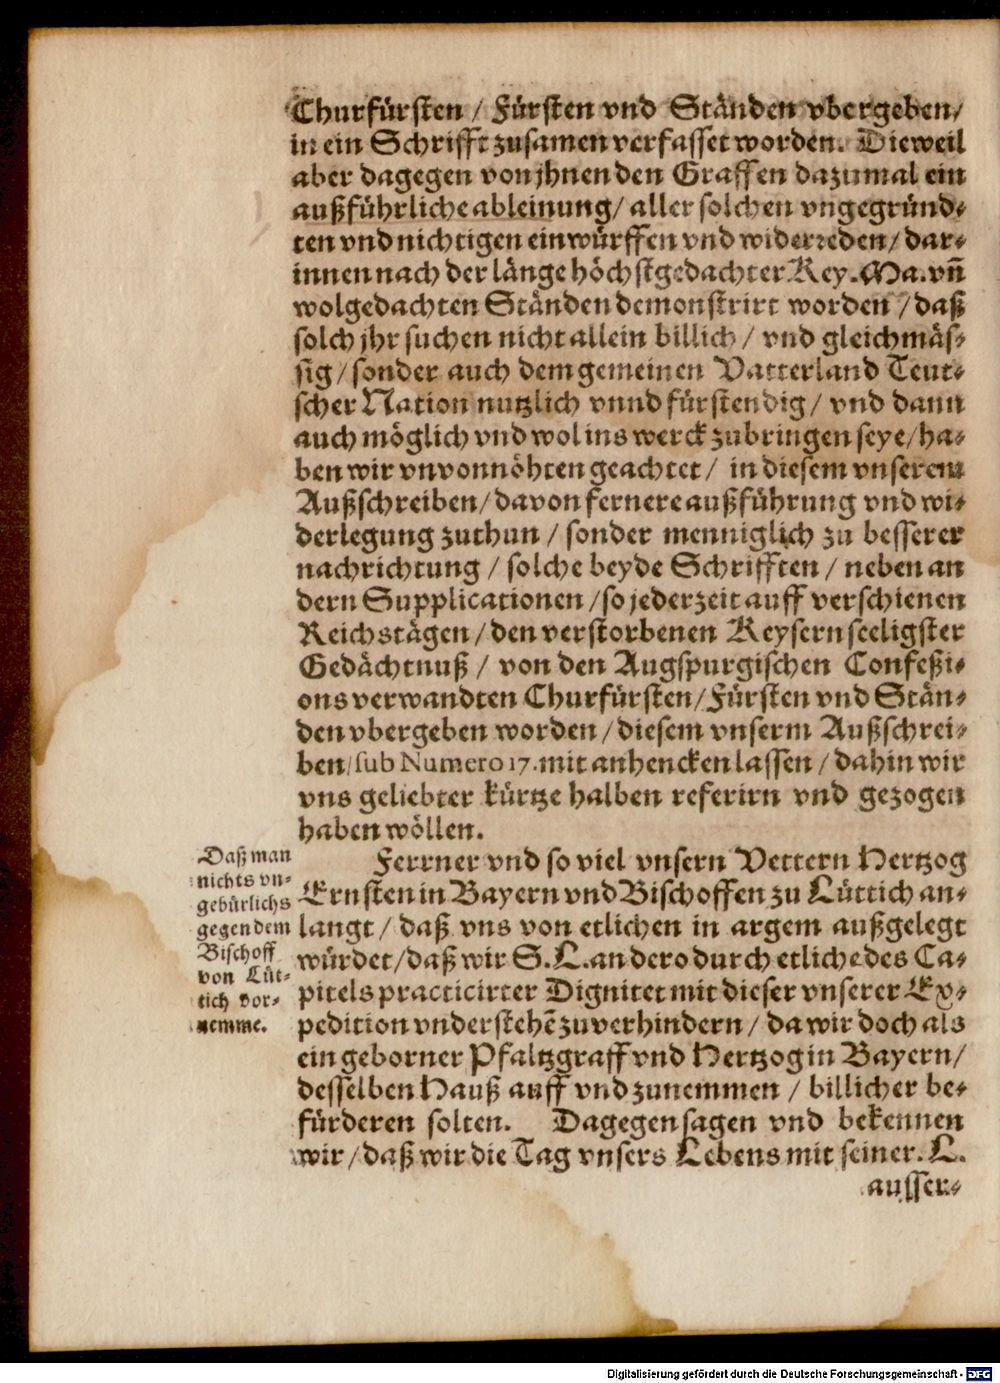 Churfürsten / Fürsten vnd Ständen vbergeben /
in ein Schrifft zusamen verfasset worden. Dieweil
aber dagegen von jhnen den Graffen dazumal ein
außführliche ableinung / aller solchen vngegründ-
ten vnd nichtigen einwürffen vnd widerreden / dar-
innen nach der länge höchstgedachter Key. Ma. vñ
wolgedachten Ständen demonstrirt worden / daß
solch jhr suchen nicht allein billich / vnd gleichmäs-
sig / sonder auch dem gemeinen Vatterland Teut-
scher Nation nutzlich vnnd fürstendig / vnd dann
auch möglich vnd wol ins werck zubringen seye / ha-
ben wir vnvonnöhten geachtet / in diesem vnserem
Außschreiben / davon fernere außführung vnd wi-
derlegung zuthun / sonder menniglich zu besserer
nachrichtung / solche beyde Schrifften / neben an
dern Supplicationen / so jederzeit auff verschienen
Reichstägen / den verstorbenen Keysern seeligster
Gedächtnuß / von den Augspurgischen Confeßi-
ons verwandten Churfürsten / Fürsten vnd Stän-
den vbergeben worden / diesem vnserm Außschrei-
ben / sub Numero 17. mit anhencken lassen / dahin wir
vns geliebter kürtze halben referirn vnd gezogen
haben wöllen.
Daß man
nichts vn-
gebürlichs
gegen dem
Bischoff
von Lüt-
tich vor-
nemme.
Ferrner vnd so viel vnsern Vettern Hertzog
Ernsten in Bayern vnd Bischoffen zu Lüttich an-
langt / daß vns von etlichen in argem außgelegt
würdet / daß wir S. L. an dero durch etliche des Ca-
pitels practicirter Dignitet mit dieser vnserer Ex-
pedition vnderstehẽ zuverhindern / da wir doch als
ein geborner Pfaltzgraff vnd Hertzog in Bayern /
desselben Hauß auff vnd zunemmen / billicher be-
fürderen solten. Dagegen sagen vnd bekennen
wir / daß wir die Tag vnsers Lebens mit seiner. L.
ausser-
Digitalisierung gefördert durch die Deutsche Forschungsgemeinschaft - DFG